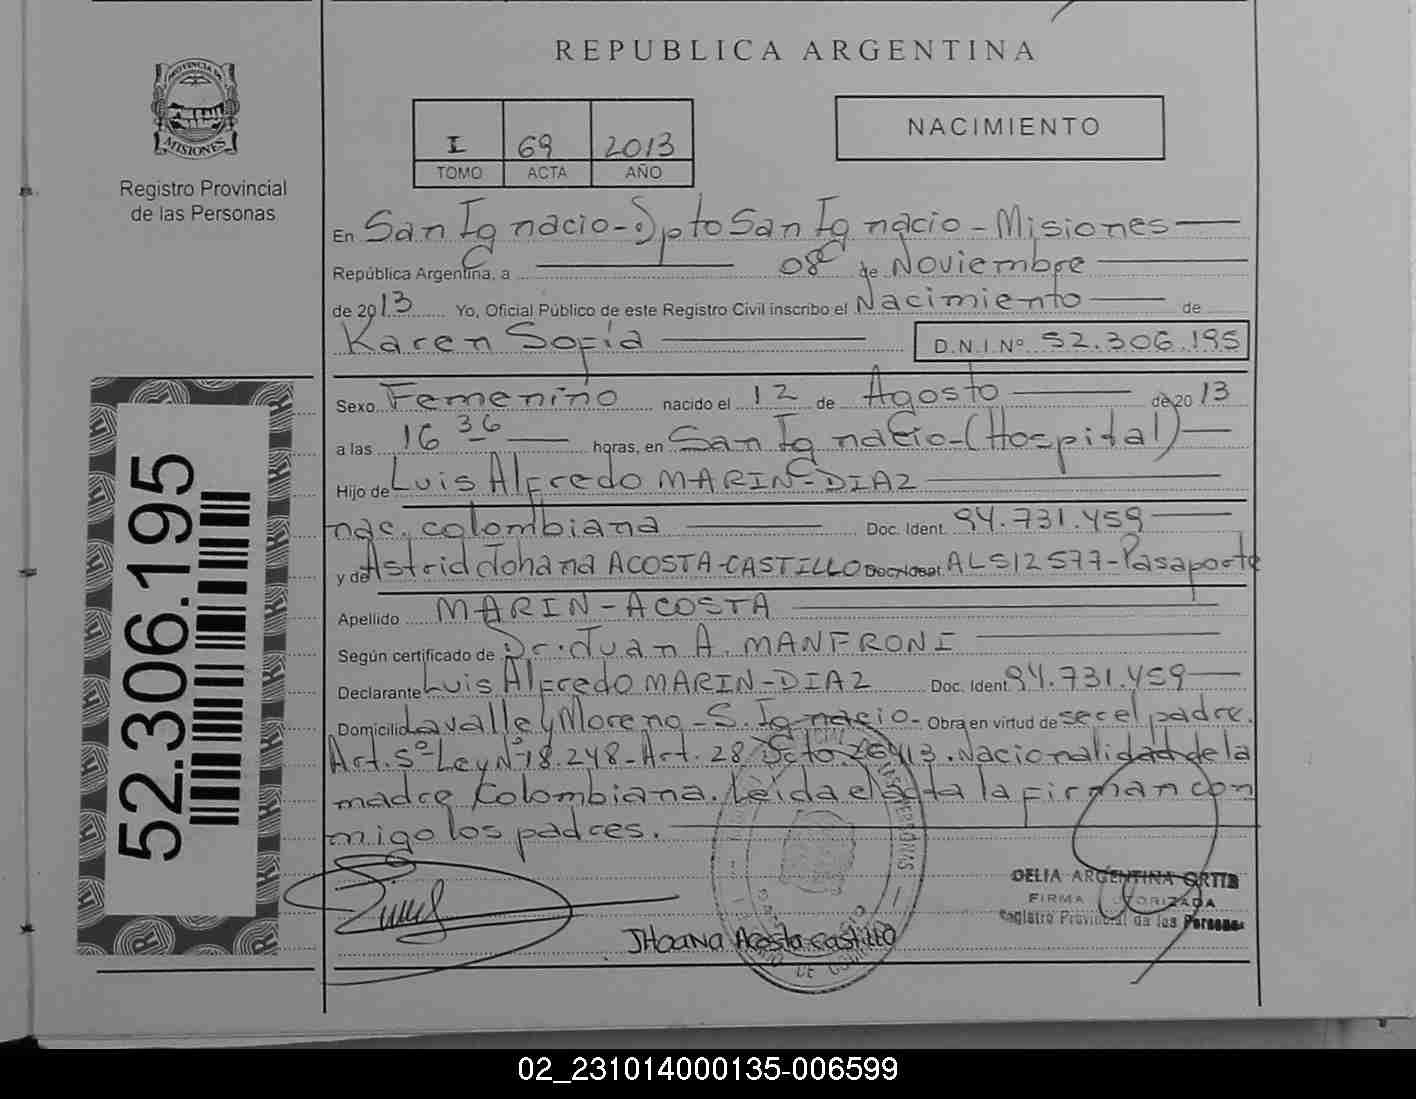 REPUBLICA ARGENTINA
PROVINCIA DE
MISIONES
Registro Provincial
de las Personas
I 69 2013
TOMO ACTA AÑO
NACIMIENTO
En San Ignacio - Dpto San Ignacio - Misiones
República Argentina, a 08 de Noviembre
de 2013 Yo, Oficial Público de este Registro Civil inscribo el Nacimiento de
Karen Sofía D.N.I.Nº 52.306.195
Sexo Femenino nacido el 12 de Agosto de 2013
a las 16 36 horas, en San Ignacio - (Hospital)
Hijo de Luis Alfredo MARIN-DIAZ
nac. colombiana Doc. Ident. 94.731.459
y de Astrid Johana ACOSTA-CASTILLO Doc. Ident. AL512577-Pasaporte
Apellido MARIN-ACOSTA
Según certificado de Dr. Juan A. MANFRONI
Declarante Luis Alfredo MARIN-DIAZ Doc. Ident 94.731.459
Domicilio Lavalle y Moreno - S. Ignacio - Obra en virtud de ser el padre.
Art. 5º Ley Nº 18.248 - Art. 28 Dcto. 26413. Nacionalidad de la
madre Colombiana. Leída el acta la firman con
migo los padres.
52.306.195
JHOANA Acosta castillo
DELIA ARGENTINA ORTIZ
FIRMA AUTORIZADA
Registro Provincial de las Personas
02_231014000135-006599